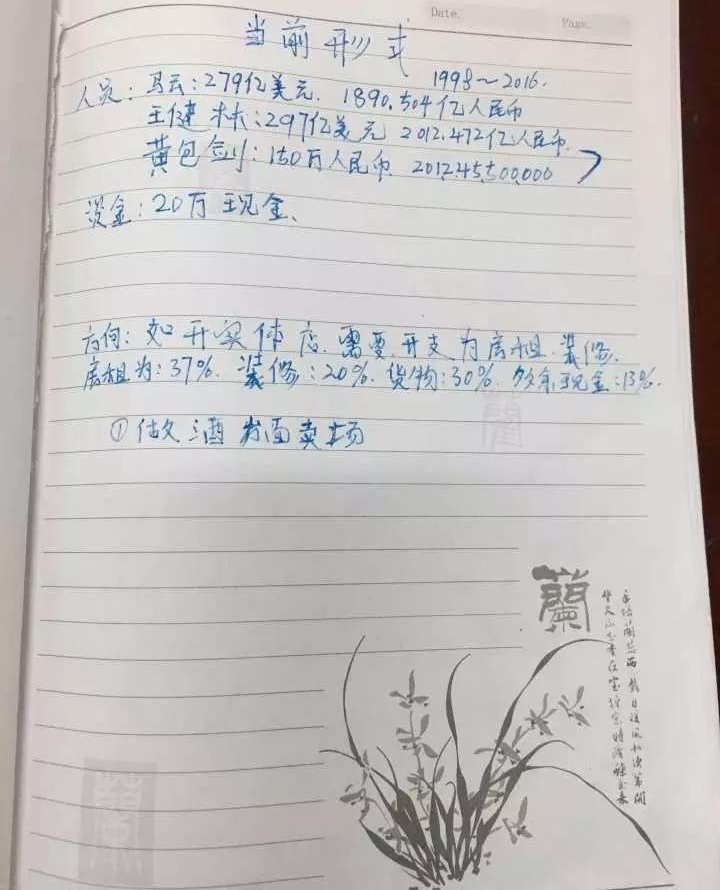 Date.
Page.
当前形式
1998~2016.
人员: 马云:279亿美元. 1890.504亿人民币
王健林:297亿美元 2012.472亿人民币.
黄包剑:150万人民币 2012.45,500,000
资金:20万现金、
方向:如开实体店.需要.开支为房租.装修.
房租为:37%. 装修:20%. 货物:30%. 多余现金:13%.
①做酒 方面卖场
蘭
蘭
蘭